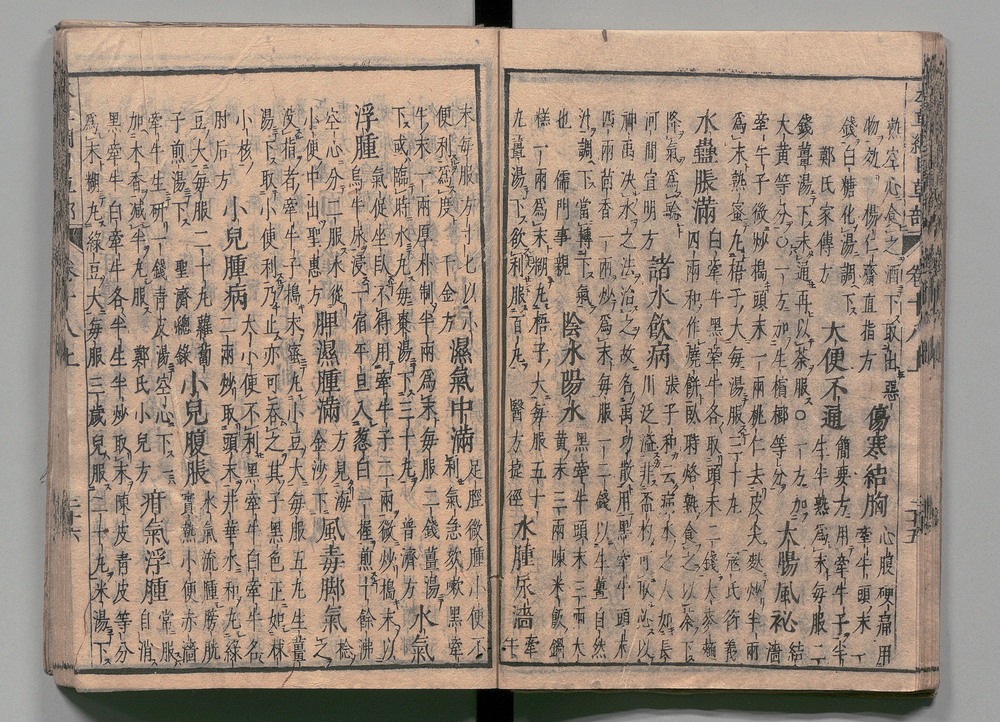 熱空心食之酒下取出惡
物効 楊仁齋直指方
傷寒結胸
心腹硬痛用
牽牛頭末一
錢白糖化湯調下
鄭氏家傳方
大便不通
簡要方用牽牛子半
生半熟爲末每服二
錢薑湯下未通再以茶服○一方加
大黄等分○一方加生檳榔等分
大腸風祕
結
濇
牽牛子微炒搗頭末一兩桃仁去皮尖麩炒半兩
爲末熟蜜丸梧子大每湯服三十丸 寇氏衍義
水蠱脹滿
白牽牛黑牽牛各取頭末二錢大麥麪
四兩和作燒餅臥時烙熟食之以茶下
降氣爲驗
河間宣明方
諸水飲病
張子和云病水之人如長
川泛溢非盃杓可取必以
神禹決水之法治之故名禹功散用黑牽牛頭末
四兩茴香一兩炒爲末每服一二錢以生薑自然
汁調下當轉下氣
也 儒門事親
陰水陽水
黑牽牛頭末三兩大
黄末三兩陳米飯鍋
糕一兩爲末糊丸梧子大每服五十
丸薑湯下欲利服百丸 醫方捷徑
水腫尿濇
牽
牛
末每服方寸匕以小
便利爲度 千金方
濕氣中滿
足脛微腫小便不
利氣急欬嗽黑牽
牛末一兩厚朴制半兩爲末每服二錢薑湯
下或臨時水丸每棗湯下三十丸 普濟方
水氣
浮腫
氣促坐臥不得用牽牛子二兩微炒搗末以
烏牛尿浸一宿平旦入葱白一握煎十餘沸
空心分二服水從
小便中出 聖惠方
脾濕腫滿
方見海
金沙下
風毒脚氣
捻
之
没指者牽牛子搗末蜜丸小豆大每服五丸生薑
湯下取小便利乃止亦可吞之其子黑色正如梂
小核
肘后方
小兒腫病
大小便不利黑牽牛白牽牛各
二兩炒取頭末井華水和丸綠
豆大每服二十丸蘿蔔
子煎湯下 聖濟總錄
小兒腹脹
水氣流腫膀胱
實熱小便赤濇
牽牛生研一錢青皮湯空心下一
加木香減半丸服 鄭氏小兒方
疳氣浮腫
常服
自消
黑牽牛白牽牛各半生半炒取末陳皮青皮等分
爲末糊丸綠豆大每服三歲兒服二十丸米湯下